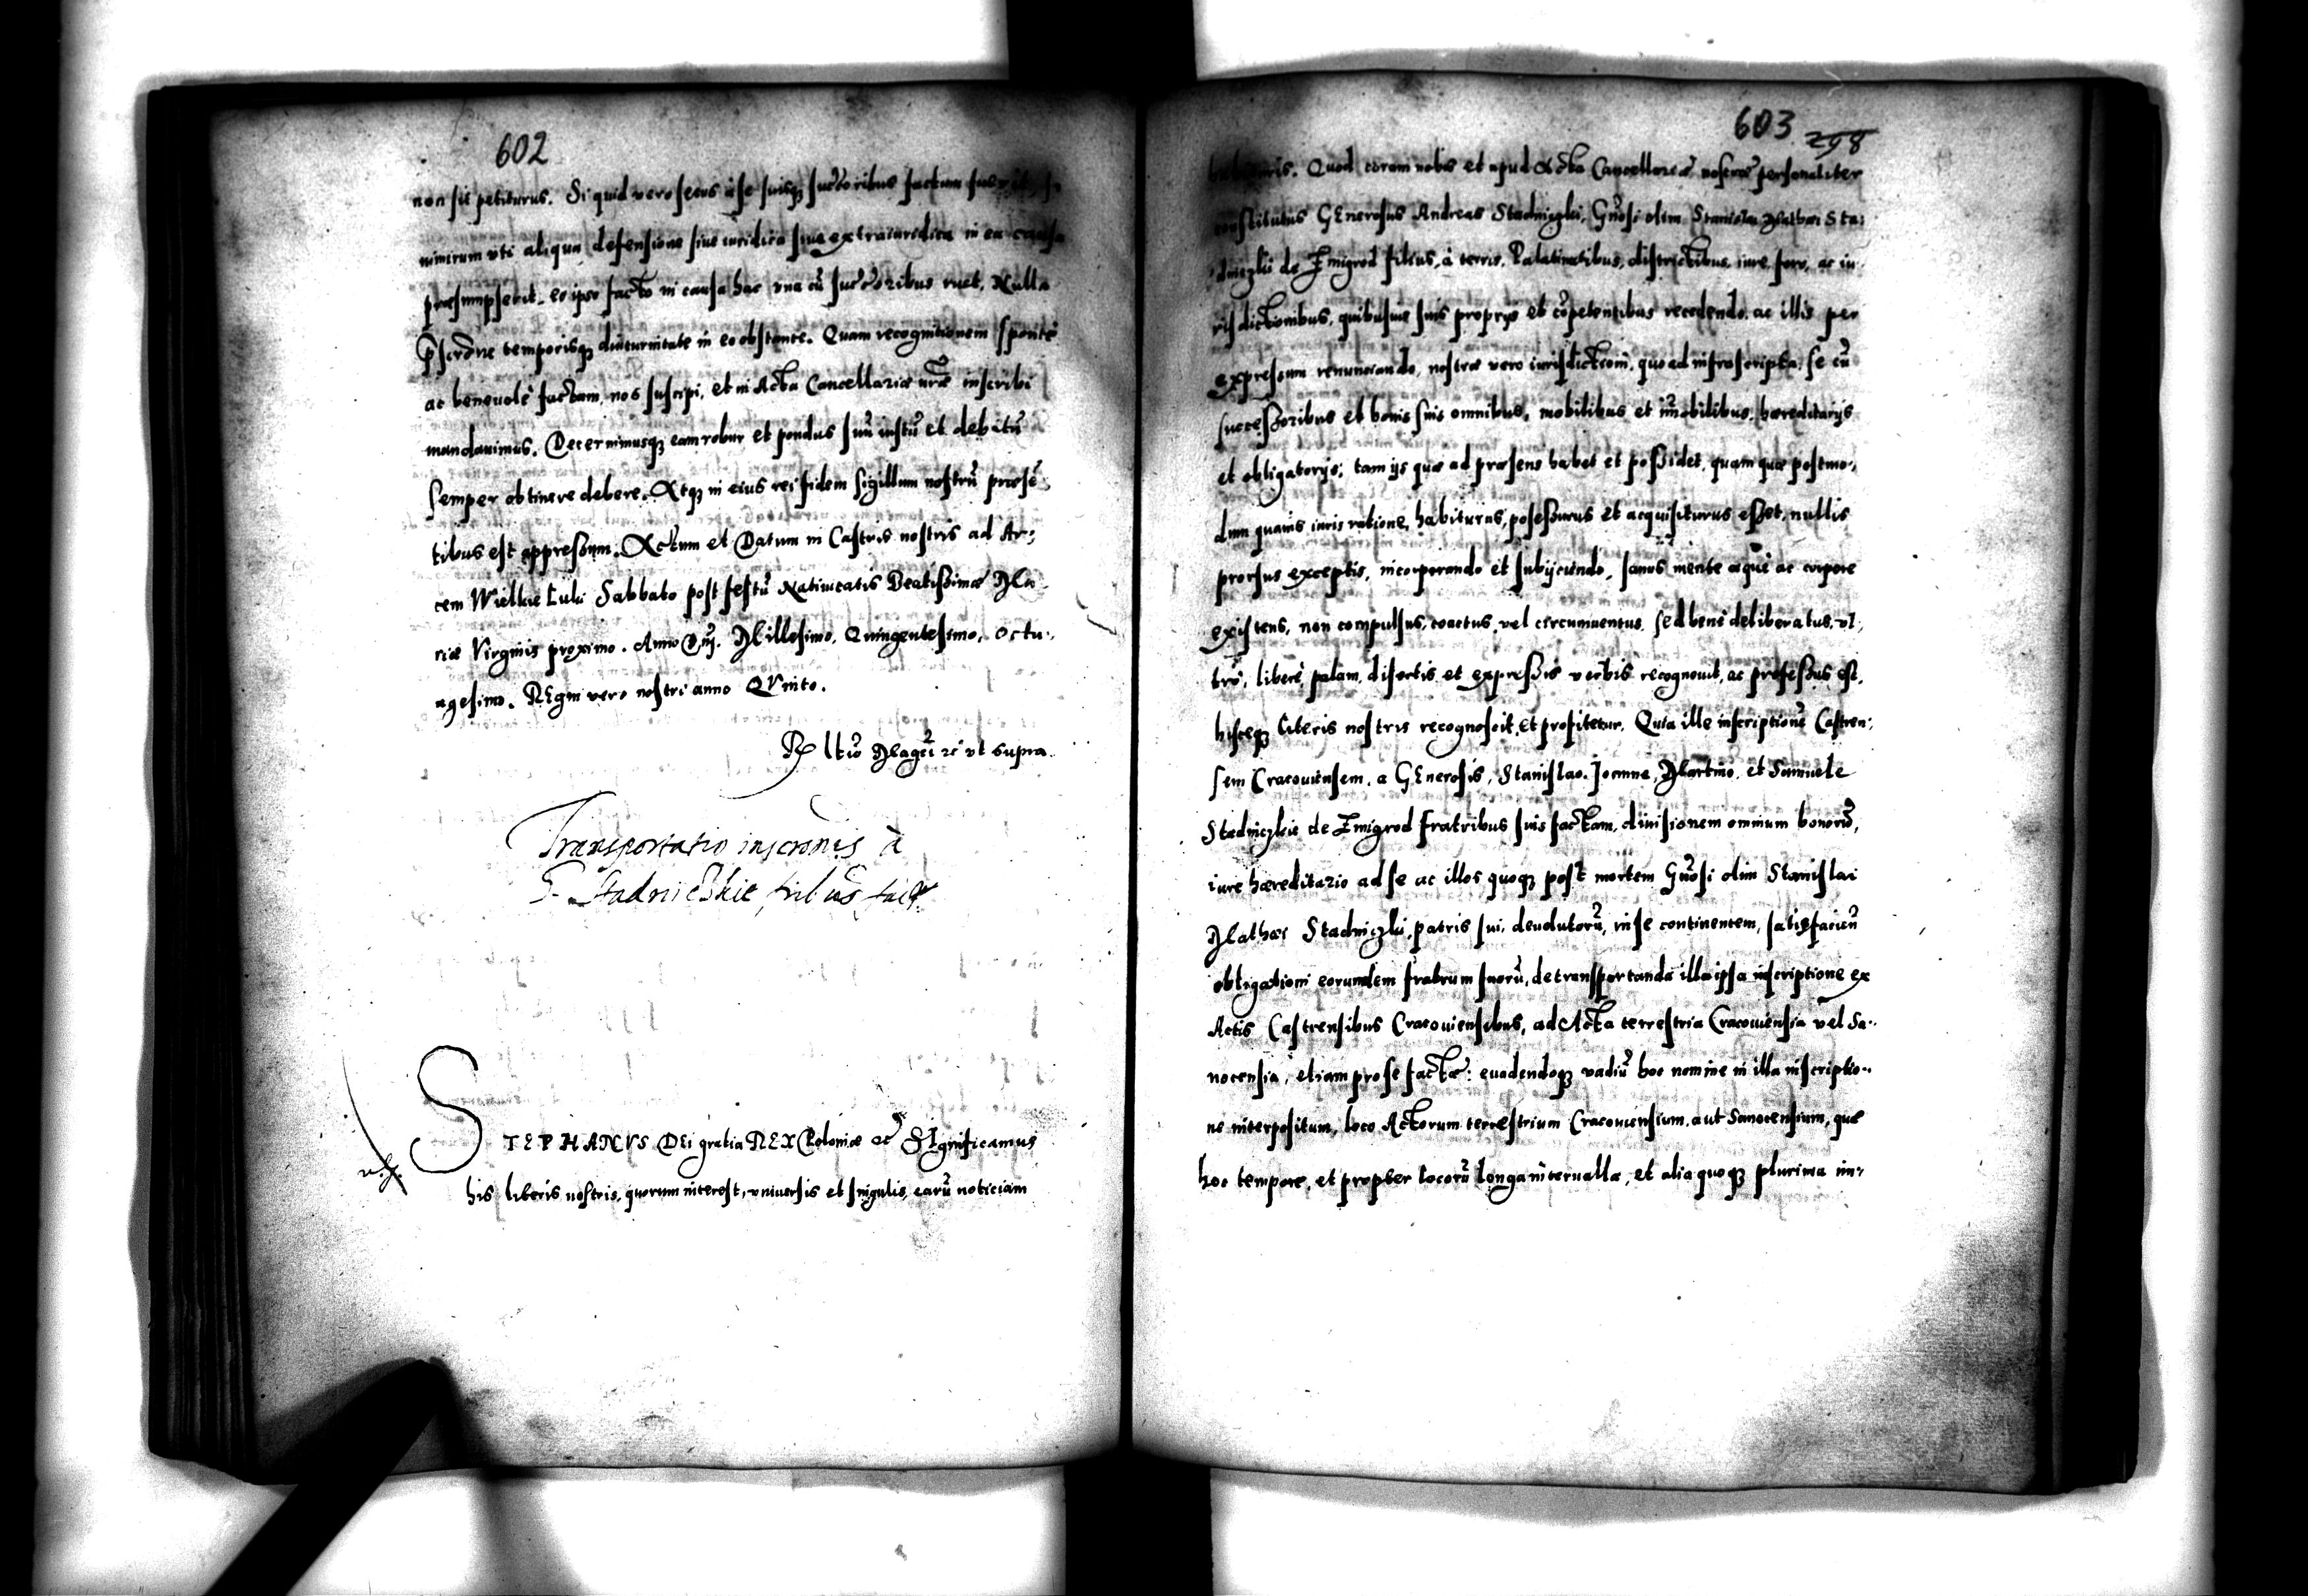 602
non sit petiturus. Si quid vero secus a se suisq; succoribus factum fuerit, si
nimirum vti aliqua defensione siue iuridica siue extraiuridica in ea causa
præsumpserit, eo ipso facto in causa hac vna cũ succoribus ruet. Nulla
pscrõne temporisq; diuturnitate in eo obstante. Quam recognitionem sponte
ac beneuole factam, nos suscipi, et in Acta Cancellariæ nræ inscribi
mandauimus. Decernimusq; eam robur et pondus suũ iustũ et debitũ
semper obtinere debere. Atq; in eius rei fidem sigillum nostrũ præsẽ-
tibus est appressum. Actum et Datum in Castris nostris ad Ar-
cem Wielkie Luki Sabbato post festũ Natiuitatis Beatissimæ Ma-
riæ Virginis proximo. Anno Dnj. Millesimo, Quingentesimo, Octu-
agesimo. REgni vero nostri anno QVinto.
Rltio Magci zc vt supra.
Transportatio inscronis à
G. Stadnicskie fribus fact
STEPHANVS DEi gratia REX Poloniæ zc SIgnificamus
his literis nostris, quorum interest, vniuersis et singulis, earũ noticiam
603 298
habituris. Quod coram nobis et apud Acta Cancellariæ nostræ personaliter
constitutus GEnerosus Andreas Stadniczki, Gñosi olim Stanislai Mathæi Sta-
dniczki de Zmigrod filius, à terris, Palatinatibus, districtibus, iure, foro, ac iu-
risdictionibus, quibusuis suis proprijs et cõpetentibus recedendo, ac illis per
expressum renunciando, nostræ vero iurisdictioni, quo ad infrascripta, se cũ
successoribus et bonis suis omnibus, mobilibus et im̃obilibus, hæreditarijs
et obligatorijs, tam ijs quæ ad præsens habet et possidet, quam quæ postmo-
dum quauis iuris ratione, habiturus, possessurus et acquisiturus esset, nullis
prorsus exceptis, incorporando et subijciendo, sanus mente æque ac corpore
existens, non compulsus, coactus, vel circumuentus, sed bene deliberatus, vl-
tro, libere, palam, disertis et expressis verbis recognouit, ac professus est,
hisceq; literis nostris recognoscit, et profitetur. Quia ille inscriptionẽ Castren-
sem Cracouiensem, a GEnerosis, Stanislao, Joanne, Martino, et Samuele
Stadniczkie de Zmigrod fratribus suis factam, diuisionem omnium bonorũ,
iure hæreditario ad se ac illos quoq; post mortem Gñosi olim Stanislai
Mathæi Stadniczki, patris sui, deuolutorũ, in se continentem, satisfaciẽ
obligationi eorundem fratrum suorũ, de transportanda illa ipsa inscriptione ex
Actis Castrensibus Cracouiensibus, ad Acta terrestria Cracouiensia vel Sa-
nocensia, etiam pro se factæ: euadendoq; vadiũ hoc nomine in illa inscriptio-
ne interpositum, loco Actorum terrestrium Cracouiensium, aut Sanocensium, quæ
hoc tempore, et propter locorũ longa interualla, et alia quoq; plurima im-